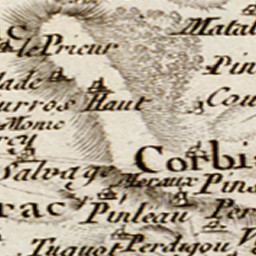 Matal
le Prieur
Pin
lade
urros Haut
Cou
Monic
rey
Corbi
Salvage
Meraux Pins
rac
Pinleau Per
Tuquot Perdigou V